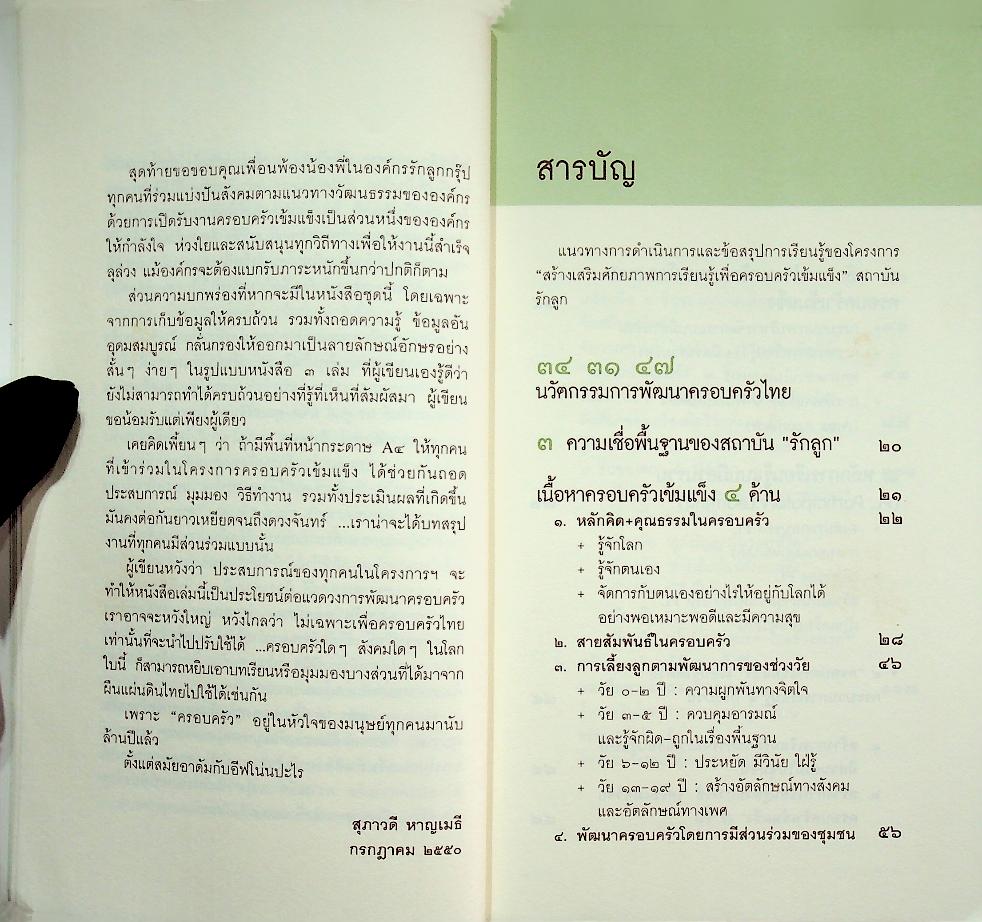 สุดท้ายขอขอบคุณเพื่อนพ้องน้องพี่ในองค์กรรักลูกกรุ๊ป
ทุกคนที่ร่วมแบ่งปันสังคมตามแนวทางวัฒนธรรมขององค์กร
ด้วยการเปิดรับงานครอบครัวเข้มแข็งเป็นส่วนหนึ่งขององค์กร
ให้กำลังใจ ห่วงใยและสนับสนุนทุกวิถีทางเพื่อให้งานนี้สำเร็จ
ลุล่วง แม้องค์กรจะต้องแบกรับภาระหนักขึ้นกว่าปกติก็ตาม
ส่วนความบกพร่องที่หากจะมีในหนังสือชุดนี้ โดยเฉพาะ
จากการเก็บข้อมูลให้ครบถ้วน รวมทั้งถอดความรู้ ข้อมูลอัน
อุดมสมบูรณ์ กลั่นกรองให้ออกมาเป็นลายลักษณ์อักษรอย่าง
สั้นๆ ง่ายๆ ในรูปแบบหนังสือ ๓ เล่ม ที่ผู้เขียนเองรู้ดีว่า
ยังไม่สามารถทำได้ครบถ้วนอย่างที่รู้ที่เห็นที่สัมผัสมา ผู้เขียน
ขอน้อมรับแต่เพียงผู้เดียว
เคยคิดเพี้ยนๆ ว่า ถ้ามีพื้นที่หน้ากระดาษ A๔ ให้ทุกคน
ที่เข้าร่วมในโครงการครอบครัวเข้มแข็ง ได้ช่วยกันถอด
ประสบการณ์ มุมมอง วิธีทำงาน รวมทั้งประเมินผลที่เกิดขึ้น
มันคงต่อกันยาวเหยียดจนถึงดวงจันทร์ ...เราน่าจะได้บทสรุป
งานที่ทุกคนมีส่วนร่วมแบบนั้น
ผู้เขียนหวังว่า ประสบการณ์ของทุกคนในโครงการฯ จะ
ทำให้หนังสือเล่มนี้เป็นประโยชน์ต่อแวดวงการพัฒนาครอบครัว
เราอาจจะหวังใหญ่ หวังไกลว่า ไม่เฉพาะเพื่อครอบครัวไทย
เท่านั้นที่จะนำไปปรับใช้ได้ ...ครอบครัวใดๆ สังคมใดๆ ในโลก
ใบนี้ ก็สามารถหยิบเอาบทเรียนหรือมุมมองบางส่วนที่ได้มาจาก
ผืนแผ่นดินไทยไปใช้ได้เช่นกัน
เพราะ “ครอบครัว” อยู่ในหัวใจของมนุษย์ทุกคนมานับ
ล้านปีแล้ว
ตั้งแต่สมัยอาดัมกับอีฟโน่นปะไร
สุภาวดี หาญเมธี
กรกฎาคม ๒๕๕๐
สารบัญ
แนวทางการดำเนินการและข้อสรุปการเรียนรู้ของโครงการ
“สร้างเสริมศักยภาพการเรียนรู้เพื่อครอบครัวเข้มแข็ง” สถาบัน
รักลูก
๓๔ ๓๑ ๔๗
นวัตกรรมการพัฒนาครอบครัวไทย
๓ ความเชื่อพื้นฐานของสถาบัน "รักลูก" ๒๐
เนื้อหาครอบครัวเข้มแข็ง ๔ ด้าน ๒๑
๑. หลักคิด+คุณธรรมในครอบครัว ๒๒
+ รู้จักโลก
+ รู้จักตนเอง
+ จัดการกับตนเองอย่างไรให้อยู่กับโลกได้
อย่างพอเหมาะพอดีและมีความสุข
๒. สายสัมพันธ์ในครอบครัว ๒๘
๓. การเลี้ยงลูกตามพัฒนาการของช่วงวัย ๔๖
+ วัย ๐-๒ ปี : ความผูกพันทางจิตใจ
+ วัย ๓-๕ ปี : ควบคุมอารมณ์
และรู้จักผิด-ถูกในเรื่องพื้นฐาน
+ วัย ๖-๑๒ ปี : ประหยัด มีวินัย ใฝ่รู้
+ วัย ๑๓-๑๙ ปี : สร้างอัตลักษณ์ทางสังคม
และอัตลักษณ์ทางเพศ
๔. พัฒนาครอบครัวโดยการมีส่วนร่วมของชุมชน ๕๖